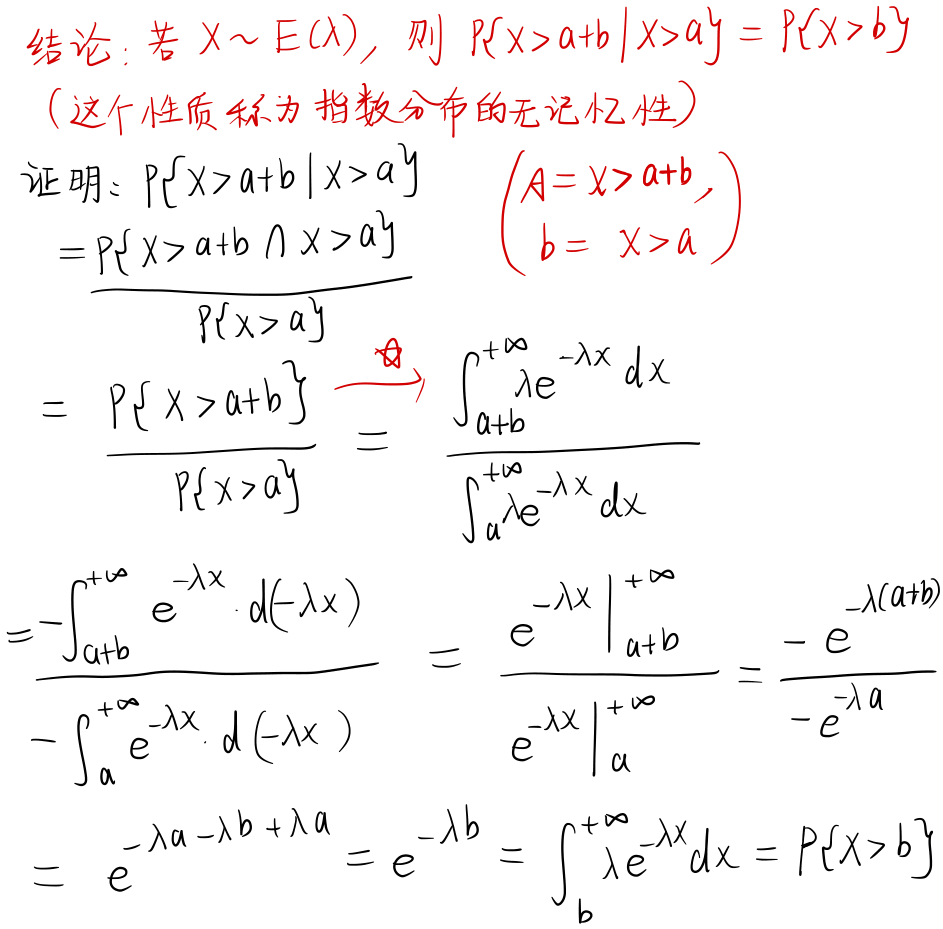 结论: 若 X ~ E(λ), 则 P{X>a+b | X>a} = P{X>b}
(这个性质称为指数分布的无记忆性)
证明: P{X>a+b | X>a} (A = X>a+b, b = X>a)
= P{X>a+b ∩ X>a} / P{X>a}
= P{X>a+b} / P{X>a} ☆→ = ∫_{a+b}^{+∞} λe^{-λx} dx / ∫_a^{+∞} λe^{-λx} dx
= -∫_{a+b}^{+∞} e^{-λx} · d(-λx) / -∫_a^{+∞} e^{-λx} · d(-λx) = e^{-λx} |_{a+b}^{+∞} / e^{-λx} |_a^{+∞} = -e^{-λ(a+b)} / -e^{-λa}
= e^{-λa-λb+λa} = e^{-λb} = ∫_b^{+∞} λe^{-λx} dx = P{X>b}